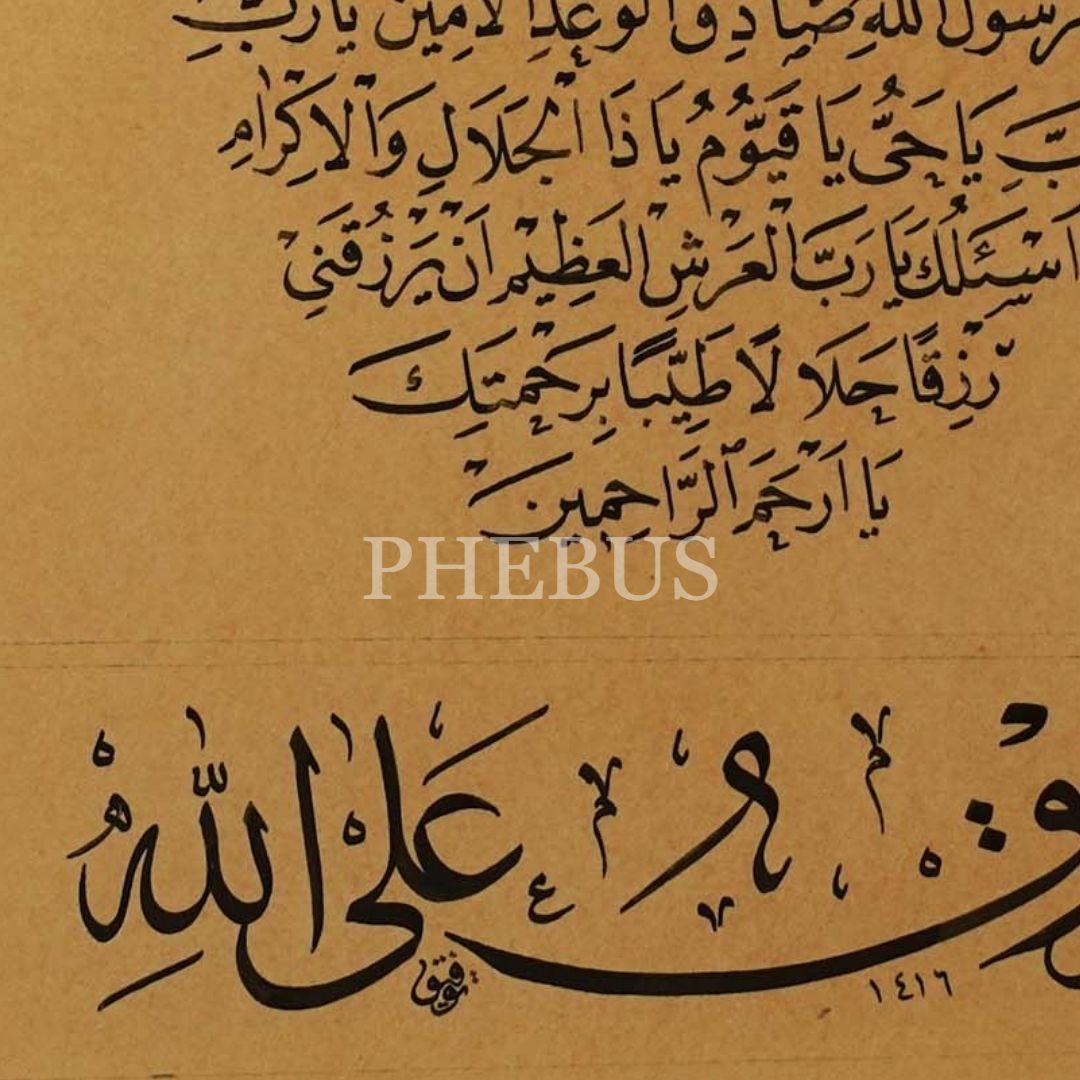 رسول الله صادق الوعد الامين يارب
يَا حَىُّ يَا قَيُّومُ يَا ذَا الْجَلَالِ وَالْاِكْرَامِ
اَسْئَلُكَ يَا رَبَّ الْعَرْشِ الْعَظِيْمِ اَنْ يَرْزُقَنِيْ
رِزْقًا حَلَالًا طَيِّبًا بِرَحْمَتِكَ
يَا اَرْحَمَ الرَّاحِمِينَ
PHEBUS
عَلَى اللّٰهِ
توفيق
١٤١٦